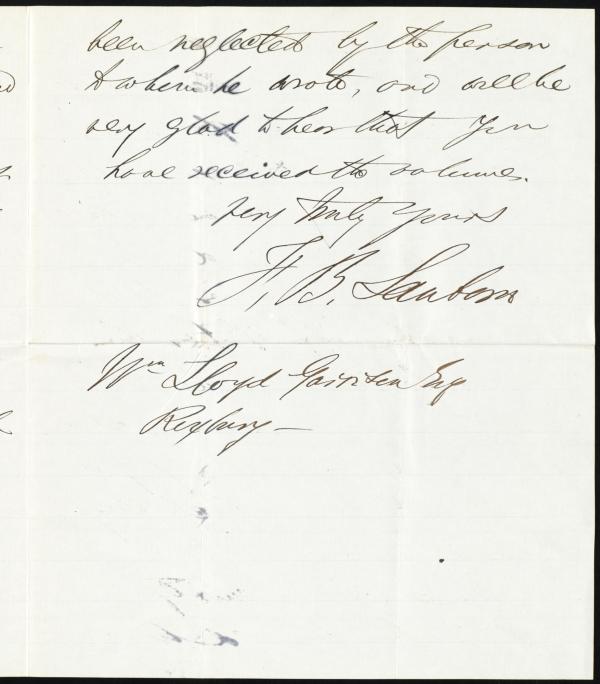 been neglected by the person
to whom he wrote, and will be
very glad to hear that you
have received the volumes.
Very truly Yours
F. B. Sanborn
Wm Lloyd Garrison Esq
Roxbury —